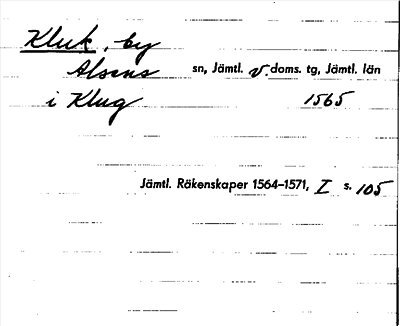 Kluk, by
Alsens sn, Jämtl. v. doms. tg, Jämtl. län
i Klug 1565
Jämtl. Räkenskaper 1564-1571, I s. 105